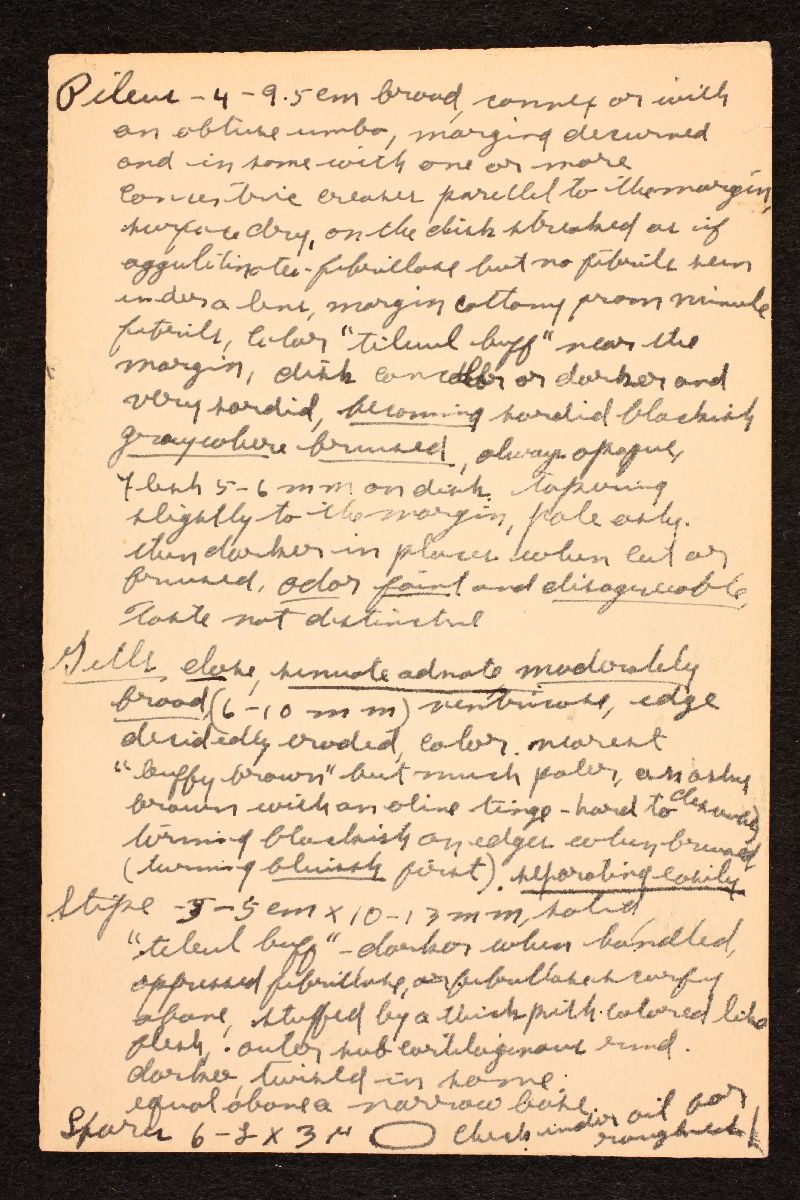 Pileus - 4 - 9.5 cm broad, convex or with
an obtuse umbo, margin decurved
and in some with one or more
concentric creases parellel to the margin,
surface dry, on the disk streaked as if
agglutinate-fibrillose but no fibrils seen
under a lens, margin cottony from minute
fibrils, color "tilleul buff" near the
margin, disk or darker and
very sordid, becoming sordid blackish
gray where bruised, always opaque,
Flesh 5-6 mm on disk, tapering
slightly to the margin, pale ashy.
then darker in places when cut or
bruised, odor faint and disagreeable,
Taste not distinctive
Gills close, sinuate adnate moderately
broad, (6-10 mm) ventricose, edge
decidedly eroded, color nearest
"buffy brown" but much paler, an ashy
brown with an olive tinge - hard to describe)
turning blackish on edges when bruised
(turning bluish first). separating easily
Stipe - 5 cm x 10-13 mm, solid
"tilleul buff" - darker when handled,
appressed fibrillose, or fibrillose scurfy
above, stuffed by a thick pith colored like
flesh, outer subcartilaginous rind
darker, twisted in some.
equal above a narrow base,
Spores 6- x 3 µ check under oil for
roughness!